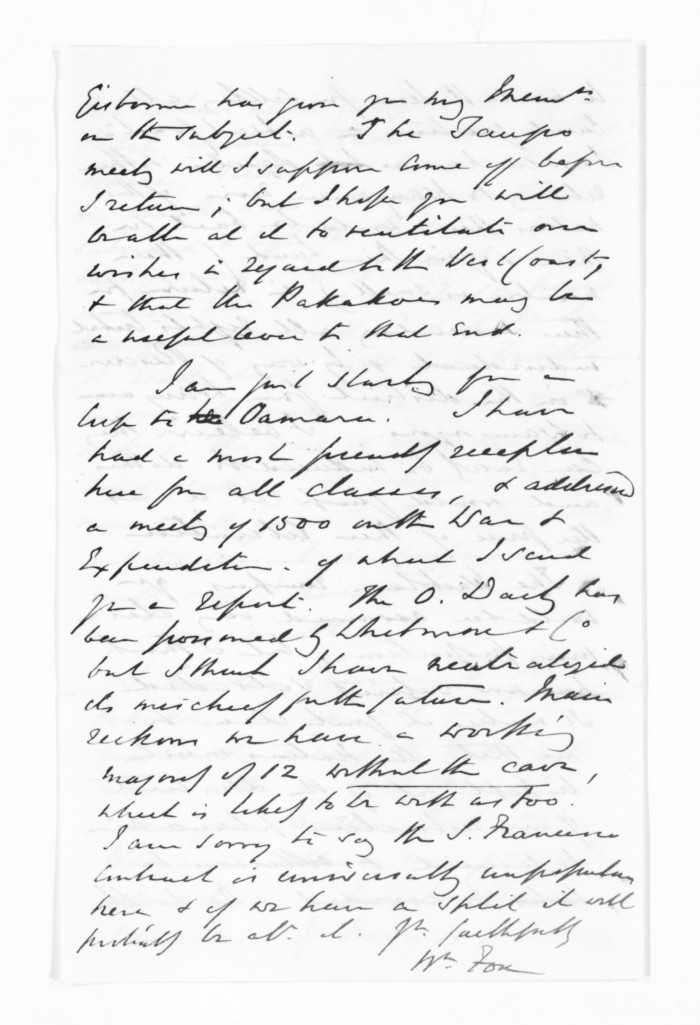 Gisborne has given you my Mem.
on the subject. The Taupo
meetg will I suppose come off before
I return; but I hope you will
be able at it to ventilate our
wishes in regard to the West Coast,
& that the Pakakohis may be
a useful lever to that end.
I am just startg for a
trip to Oamaru. I have
had a most friendly reception
here from all classes, & addressed
a meetg of 1500 on the War &
Expenditure of which I send
you a report. The O. Daily has
been poisoned by Whitmore & Co
but I think I have neutralized
its mischief for the future.
reckons we have a working
majority of 12 without the cave,
which is likely to be with us too.
I am sorry to say the S. Francisco
Contract is universally unpopular
here & if we have a split it will
probably be abt. it. Yrs. faithfully
Wm Fox